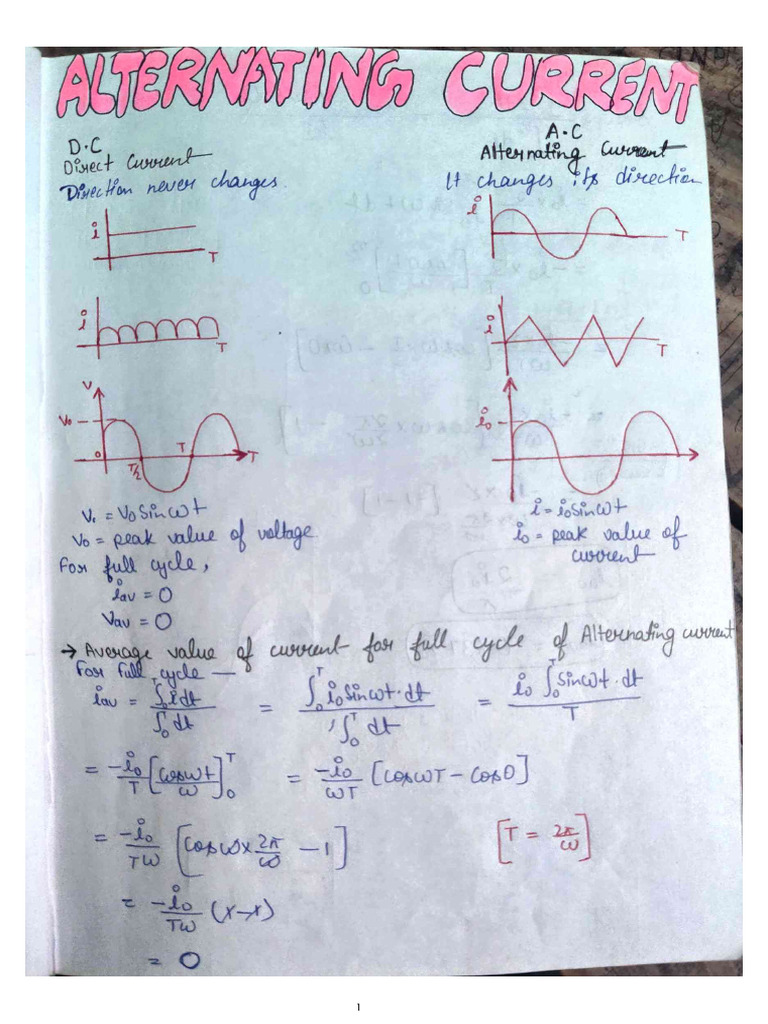 ALTERNATING CURRENT
D.C
Direct Current
Direction never changes.
A.C
Alternating Current
It changes its direction
i
T
i
T
i
T
i
T
V
V₀
0
T/2
T
T
i
i₀
V. = V₀ Sin ωt
V₀ = peak value of voltage
For full cycle,
iav = 0
Vav = 0
i = i₀ Sin ωt
i₀ = peak value of
current
→ Average value of current for full cycle of Alternating current
For Full cycle —
iav = ∫₀ᵀ i dt / ∫₀ᵀ dt = ∫₀ᵀ i₀ Sin ωt · dt / ∫₀ᵀ dt = i₀ ∫₀ᵀ Sin ωt · dt / T
= -i₀/T [cos ωt / ω]₀ᵀ = -i₀/ωT [Cos ωT - Cos 0]
= -i₀/Tω [Cos ω × 2π/ω - 1] [T = 2π/ω]
= -i₀/Tω (1 - 1)
= 0
1